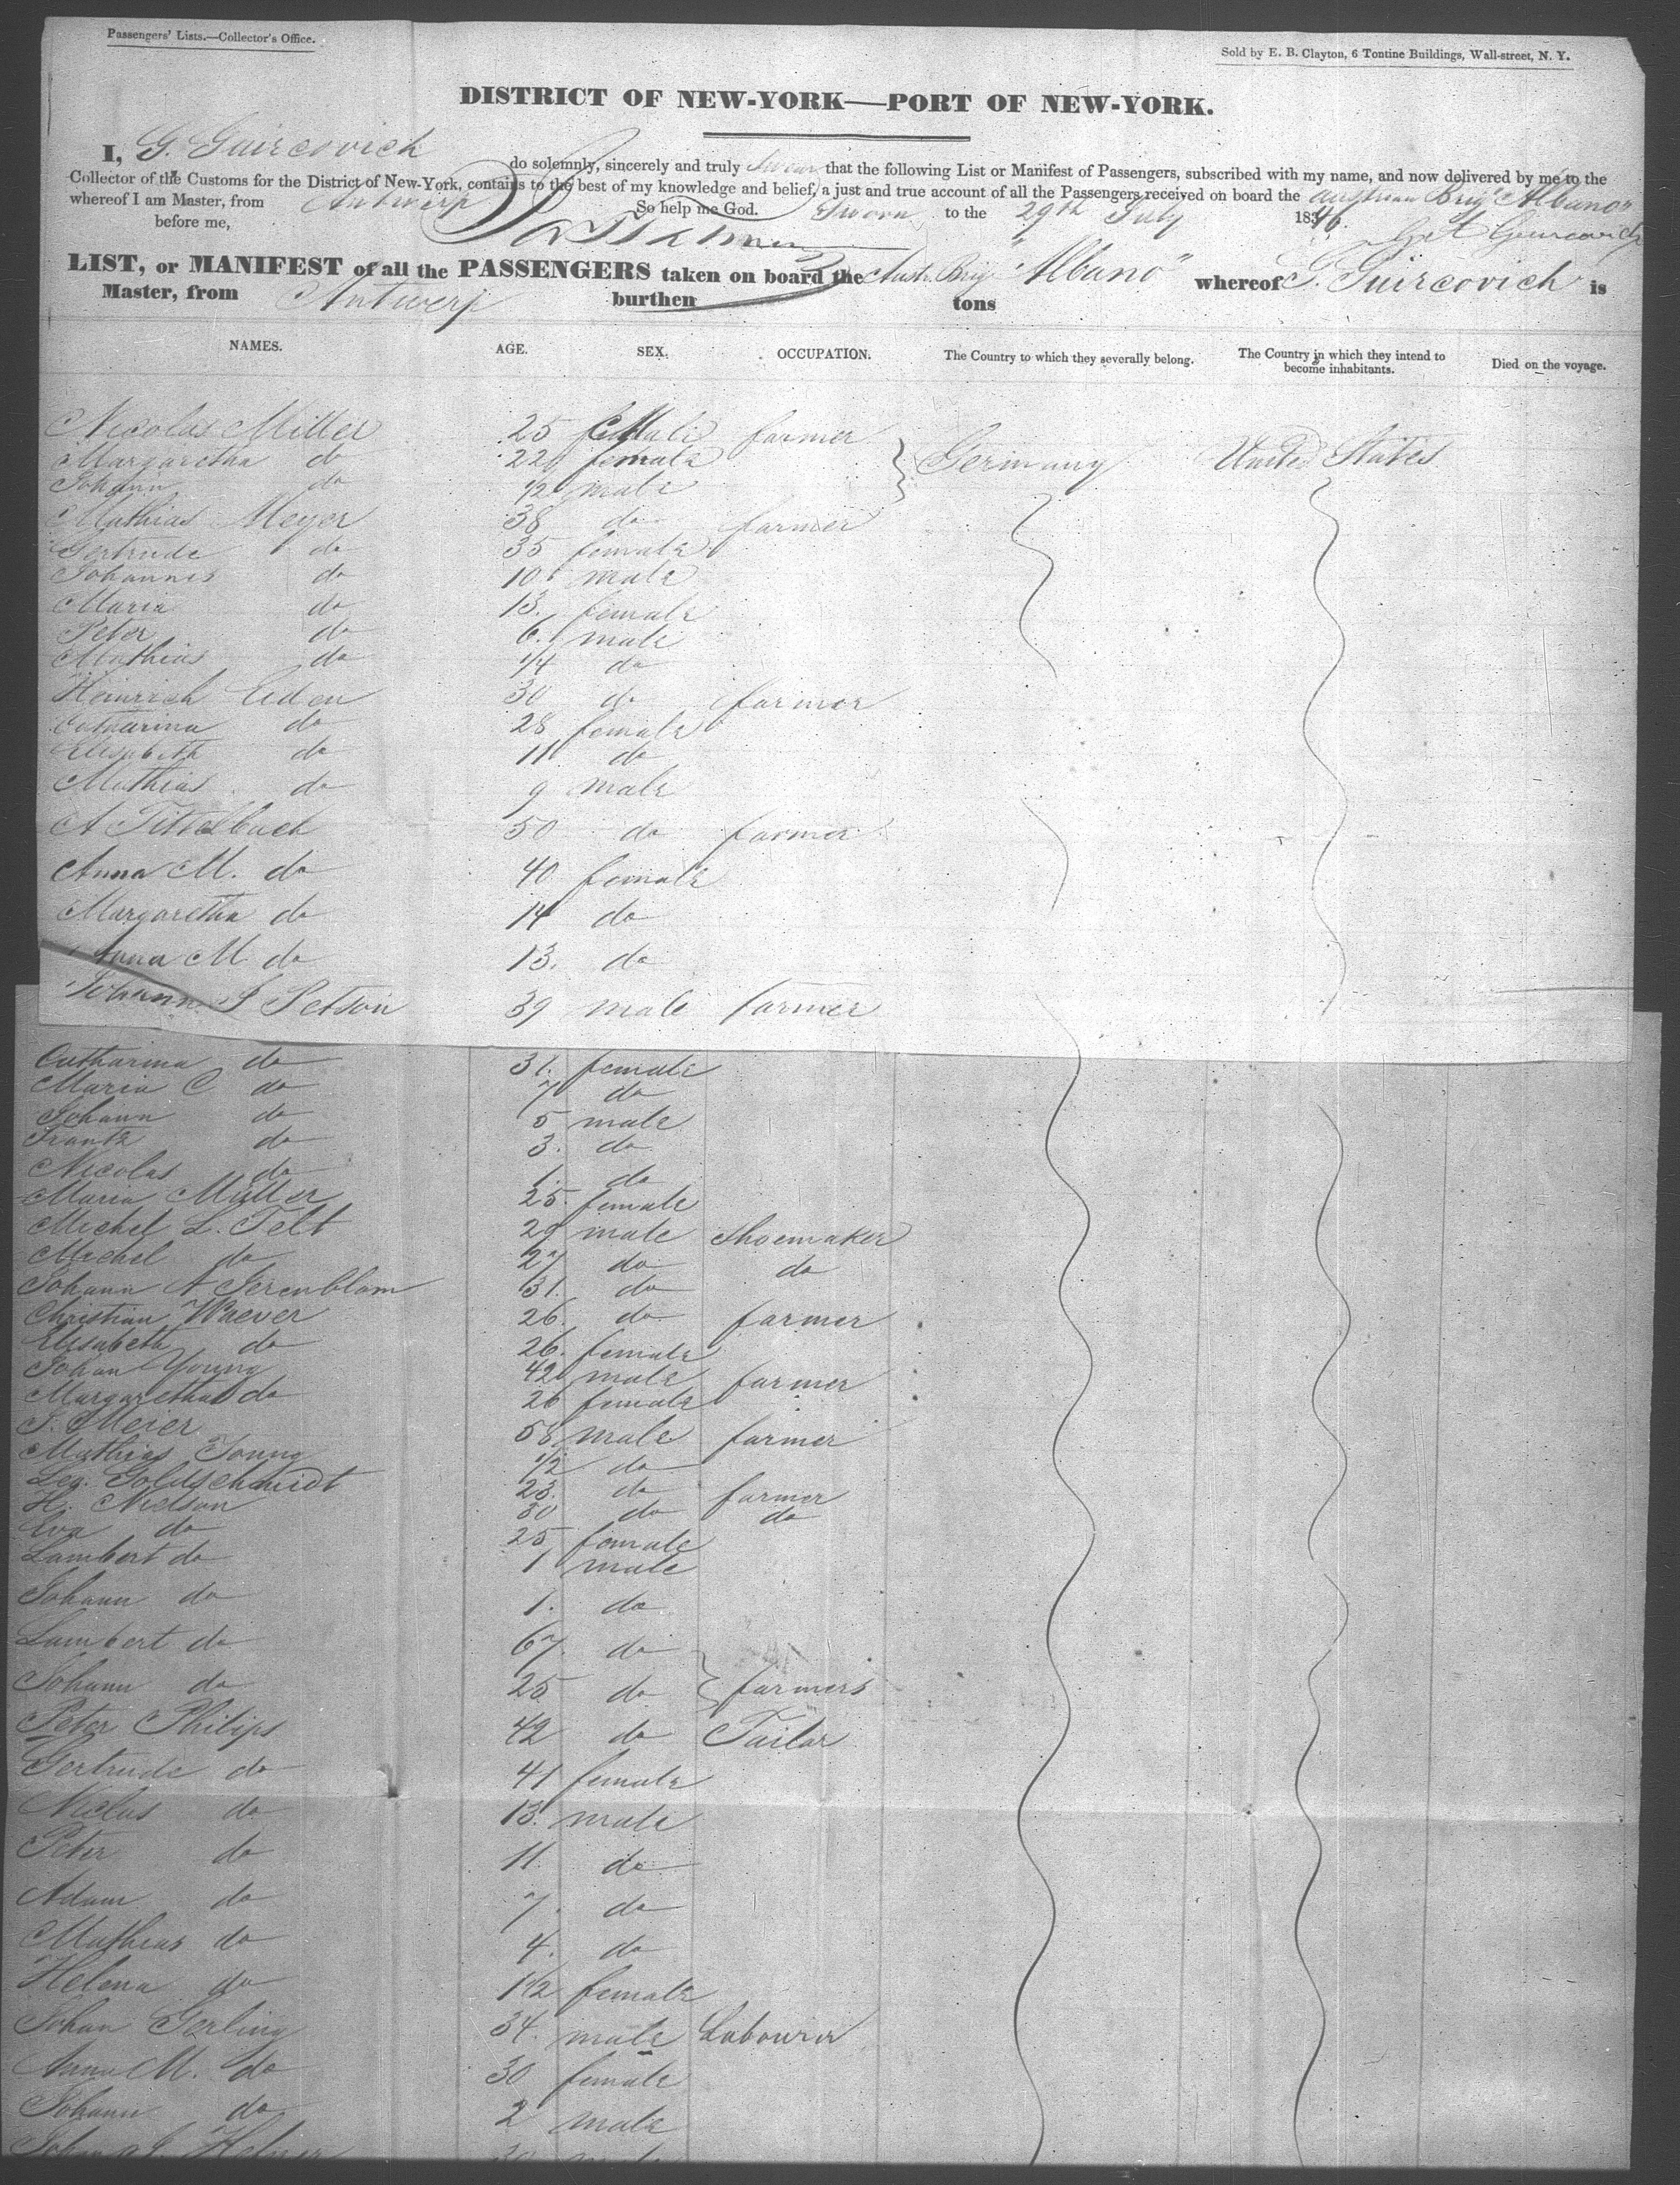 Passengers' Lists.—Collector's Office.
Sold by E. B. Clayton, 6 Tontine Buildings, Wall-street, N. Y.
DISTRICT OF NEW-YORK—PORT OF NEW-YORK.
I, G. Guircovich do solemnly, sincerely and truly swear that the following List or Manifest of Passengers, subscribed with my name, and now delivered by me to the
Collector of the Customs for the District of New-York, contains to the best of my knowledge and belief, a just and true account of all the Passengers received on board the Austrian Brig "Albano"
whereof I am Master, from Antwerp So help me God. Sworn to the 29th July 1846.
before me,
LIST, or MANIFEST of all the PASSENGERS taken on board the Austr. Brig "Albano" whereof G. Guircovich is
Master, from Antwerp burthen tons
NAMES. AGE. SEX. OCCUPATION. The Country to which they severally belong. The Country in which they intend to become inhabitants. Died on the voyage.
Nicolas Miller 25 Male farmer
Margaretha do 22 female Germany United States
Johann do 1/2 male
Mathias Meyer 38 do farmer
Gertrude do 35 female
Johannes do 10 male
Maria do 13. female
Peter do 6. male
Mathias do 1/4 do
Heinrich Eiden 30 do farmer
Catharina do 28 female
Elisabeth do 11 do
Mathias do 9 male
A Tittelbach 50 do farmer
Anna M. do 40 female
Margaretha do 14 do
Anna M. do 13. do
Johann J Petson 39 male farmer
Catharina do 31. female
Maria C do 7 do
Johann do 5 male
Frantz do 3. do
Nicolas do 1. do
Maria Müller 25. female
Michel L. Felt 29 male Shoemaker
Michel do 27 do do
Johann A Serenblom 31. do
Christian Waever 26. do farmer
Elisabeth do 26. female
Johan Young 42 male farmer
Margaretha do 26 female
J. Meier 58 male farmer
Mathias Young 1/2 do
Leo. Goldschmidt 23. do farmer
H. Nielson 30 do do
Eva do 25 female
Lambert do 1 male
Johann do 1. do
Lambert do 67. do
Johann do 25 do farmers
Peter Philips 42 do Tailor
Gertrude do 41 female
Niclas do 13. male
Peter do 11. do
Adam do 7. do
Mathias do 4. do
Helena do 1 1/2 female
Johan Gerling 34. male Labourer
Anna M. do 30 female
Johann do 2 male